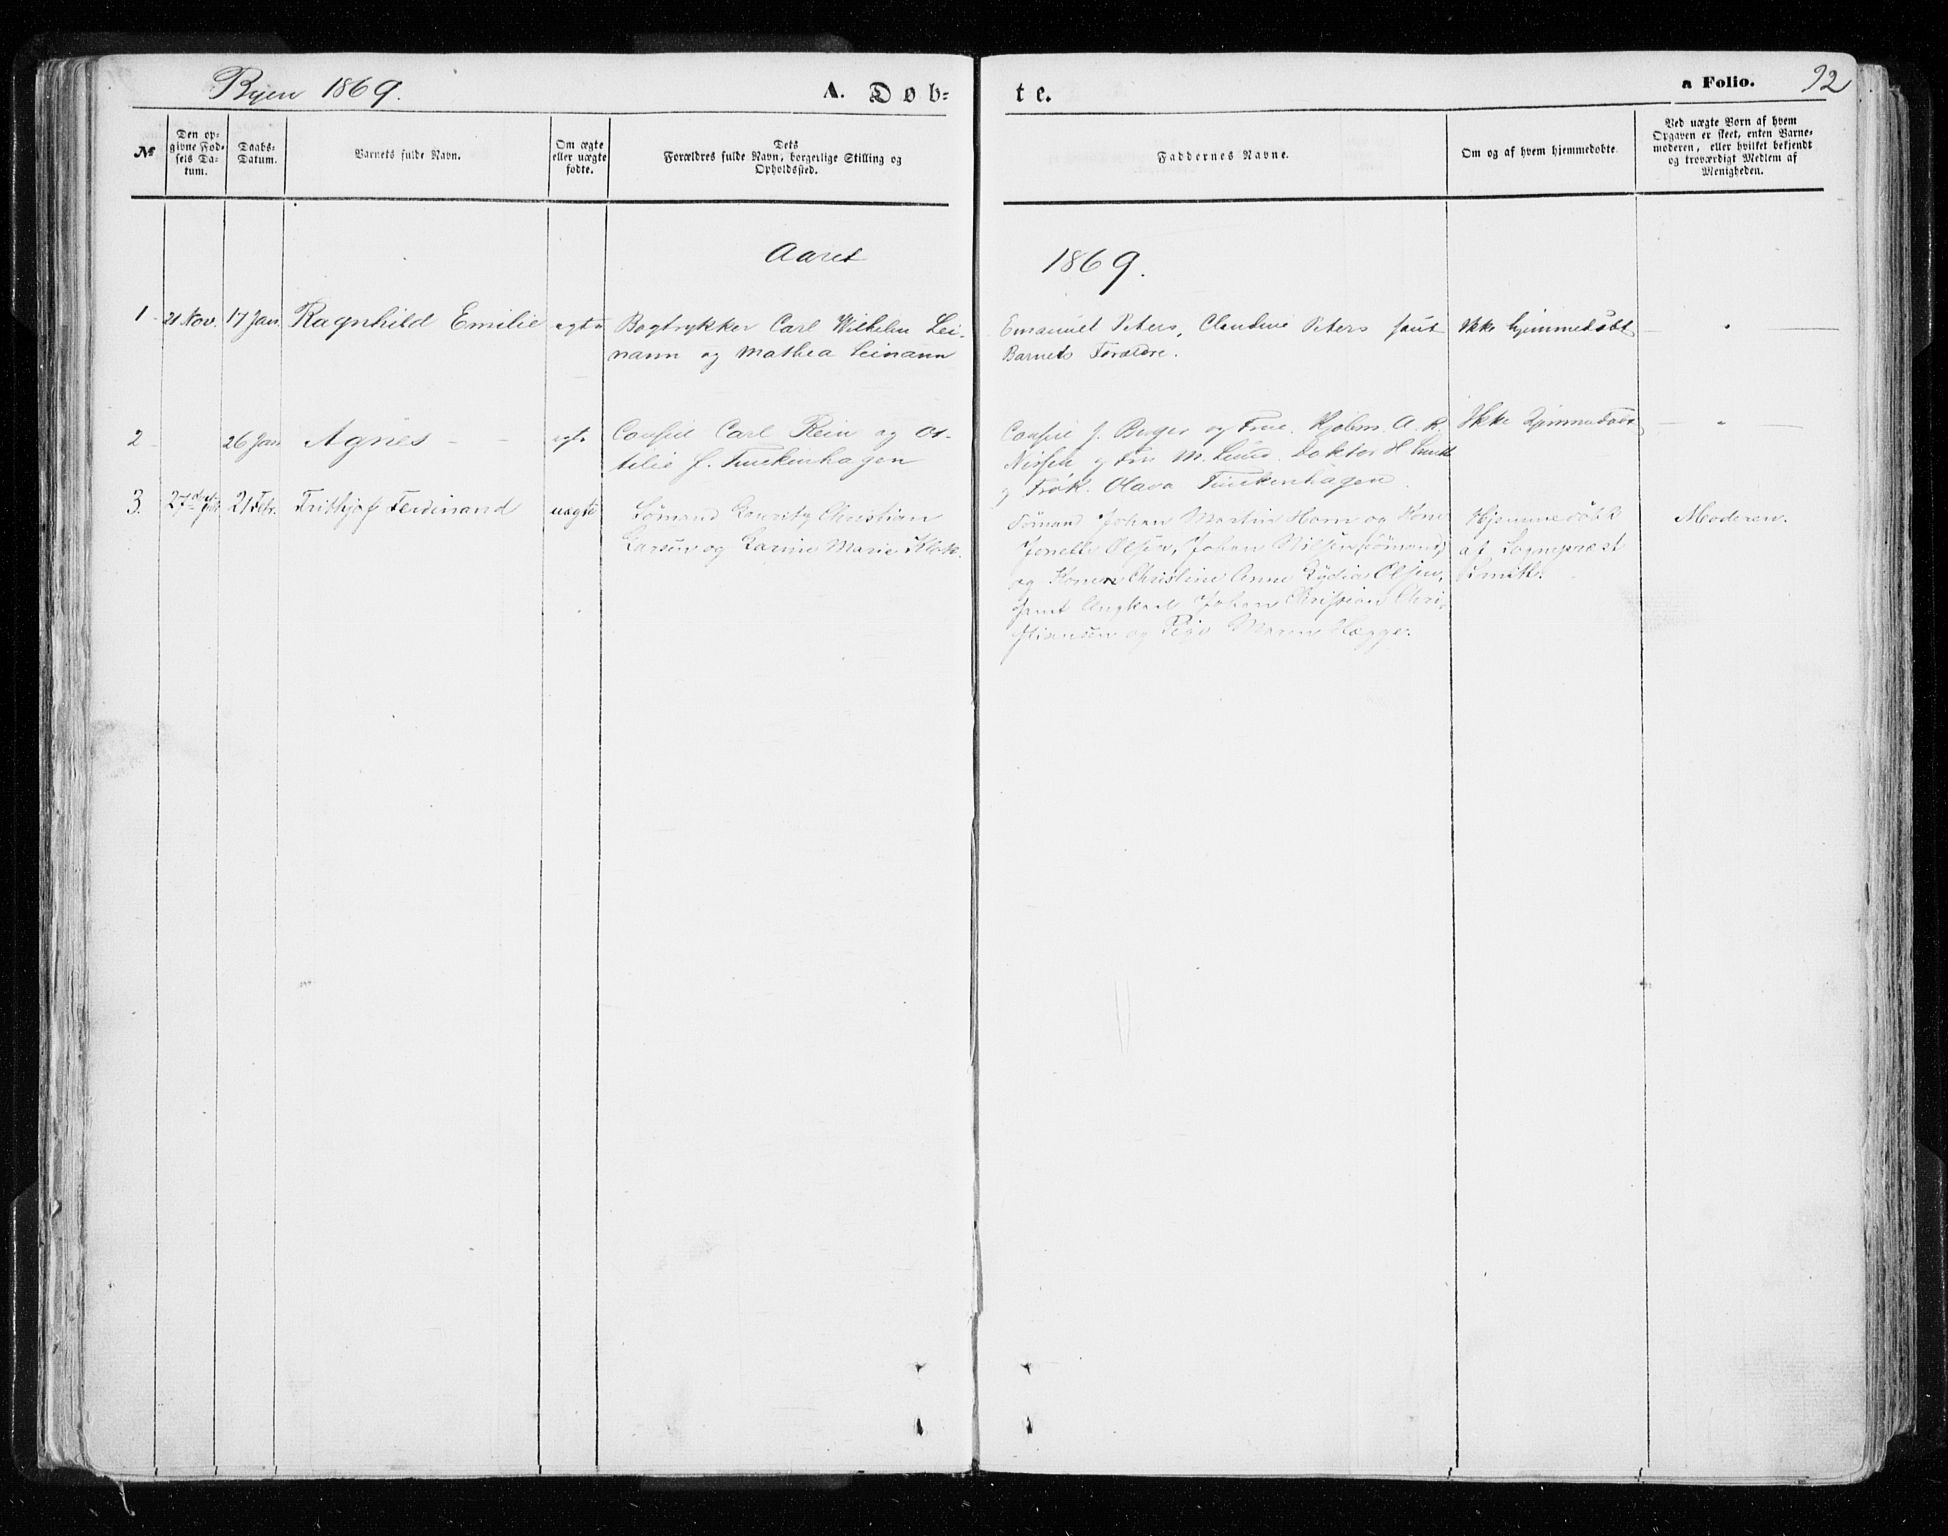 Byen 1869.
A. Døb-
te.
a Folio. 92
No
Den op-
givne Fød-
sels Da-
tum.
Daabs-
Datum.
Barnets fulde Navn.
Om ægte
eller uægte
fødte.
Dets
Forældres fulde Navn, borgerlige Stilling og
Opholdssted.
Faddernes Navne.
Om og af hvem hjemmedøbte.
Ved uægte Børn af hvem
Opgaven er skeet, enten Barne-
moderen, eller hvilket bekjendt
og troværdigt Medlem af
Menigheden.
Aaret
1869.
1 21 Nov. 17 Jan. Ragnhild Emilie ægte
Bogtrykker Carl Wilhelm Lei-
nann og Mathea Leinann
Emanuel Peters, Claudine Peters samt
Barnets Forældre.
Ikke hjemmedøbt
2 26 Jan Agnes
Consul Carl Rein og Ot-
tilie f. Finckenhagen
Consul J. Berger og Frue. A. R.
Nissen og M. Lund. Doktor H
og Frøk. Olava Finckenhagen.
Ikke hjemmedøbt
3. 27 21 Febr. Frithjof Ferdinand uægte
Sømand Lauritz Christian
Larsen og Karine Marie
Sømand Johan Martin Horn og Kone
Olsen, Johan Nilsen (Sømand)
og Konen Christine Anne Lydia Olsen,
samt Ungkarl Johan Christian Chri-
stiansen og Pige Hegge.
Hjemmedøbt
af Sognepræst
Smith.
Moderen.